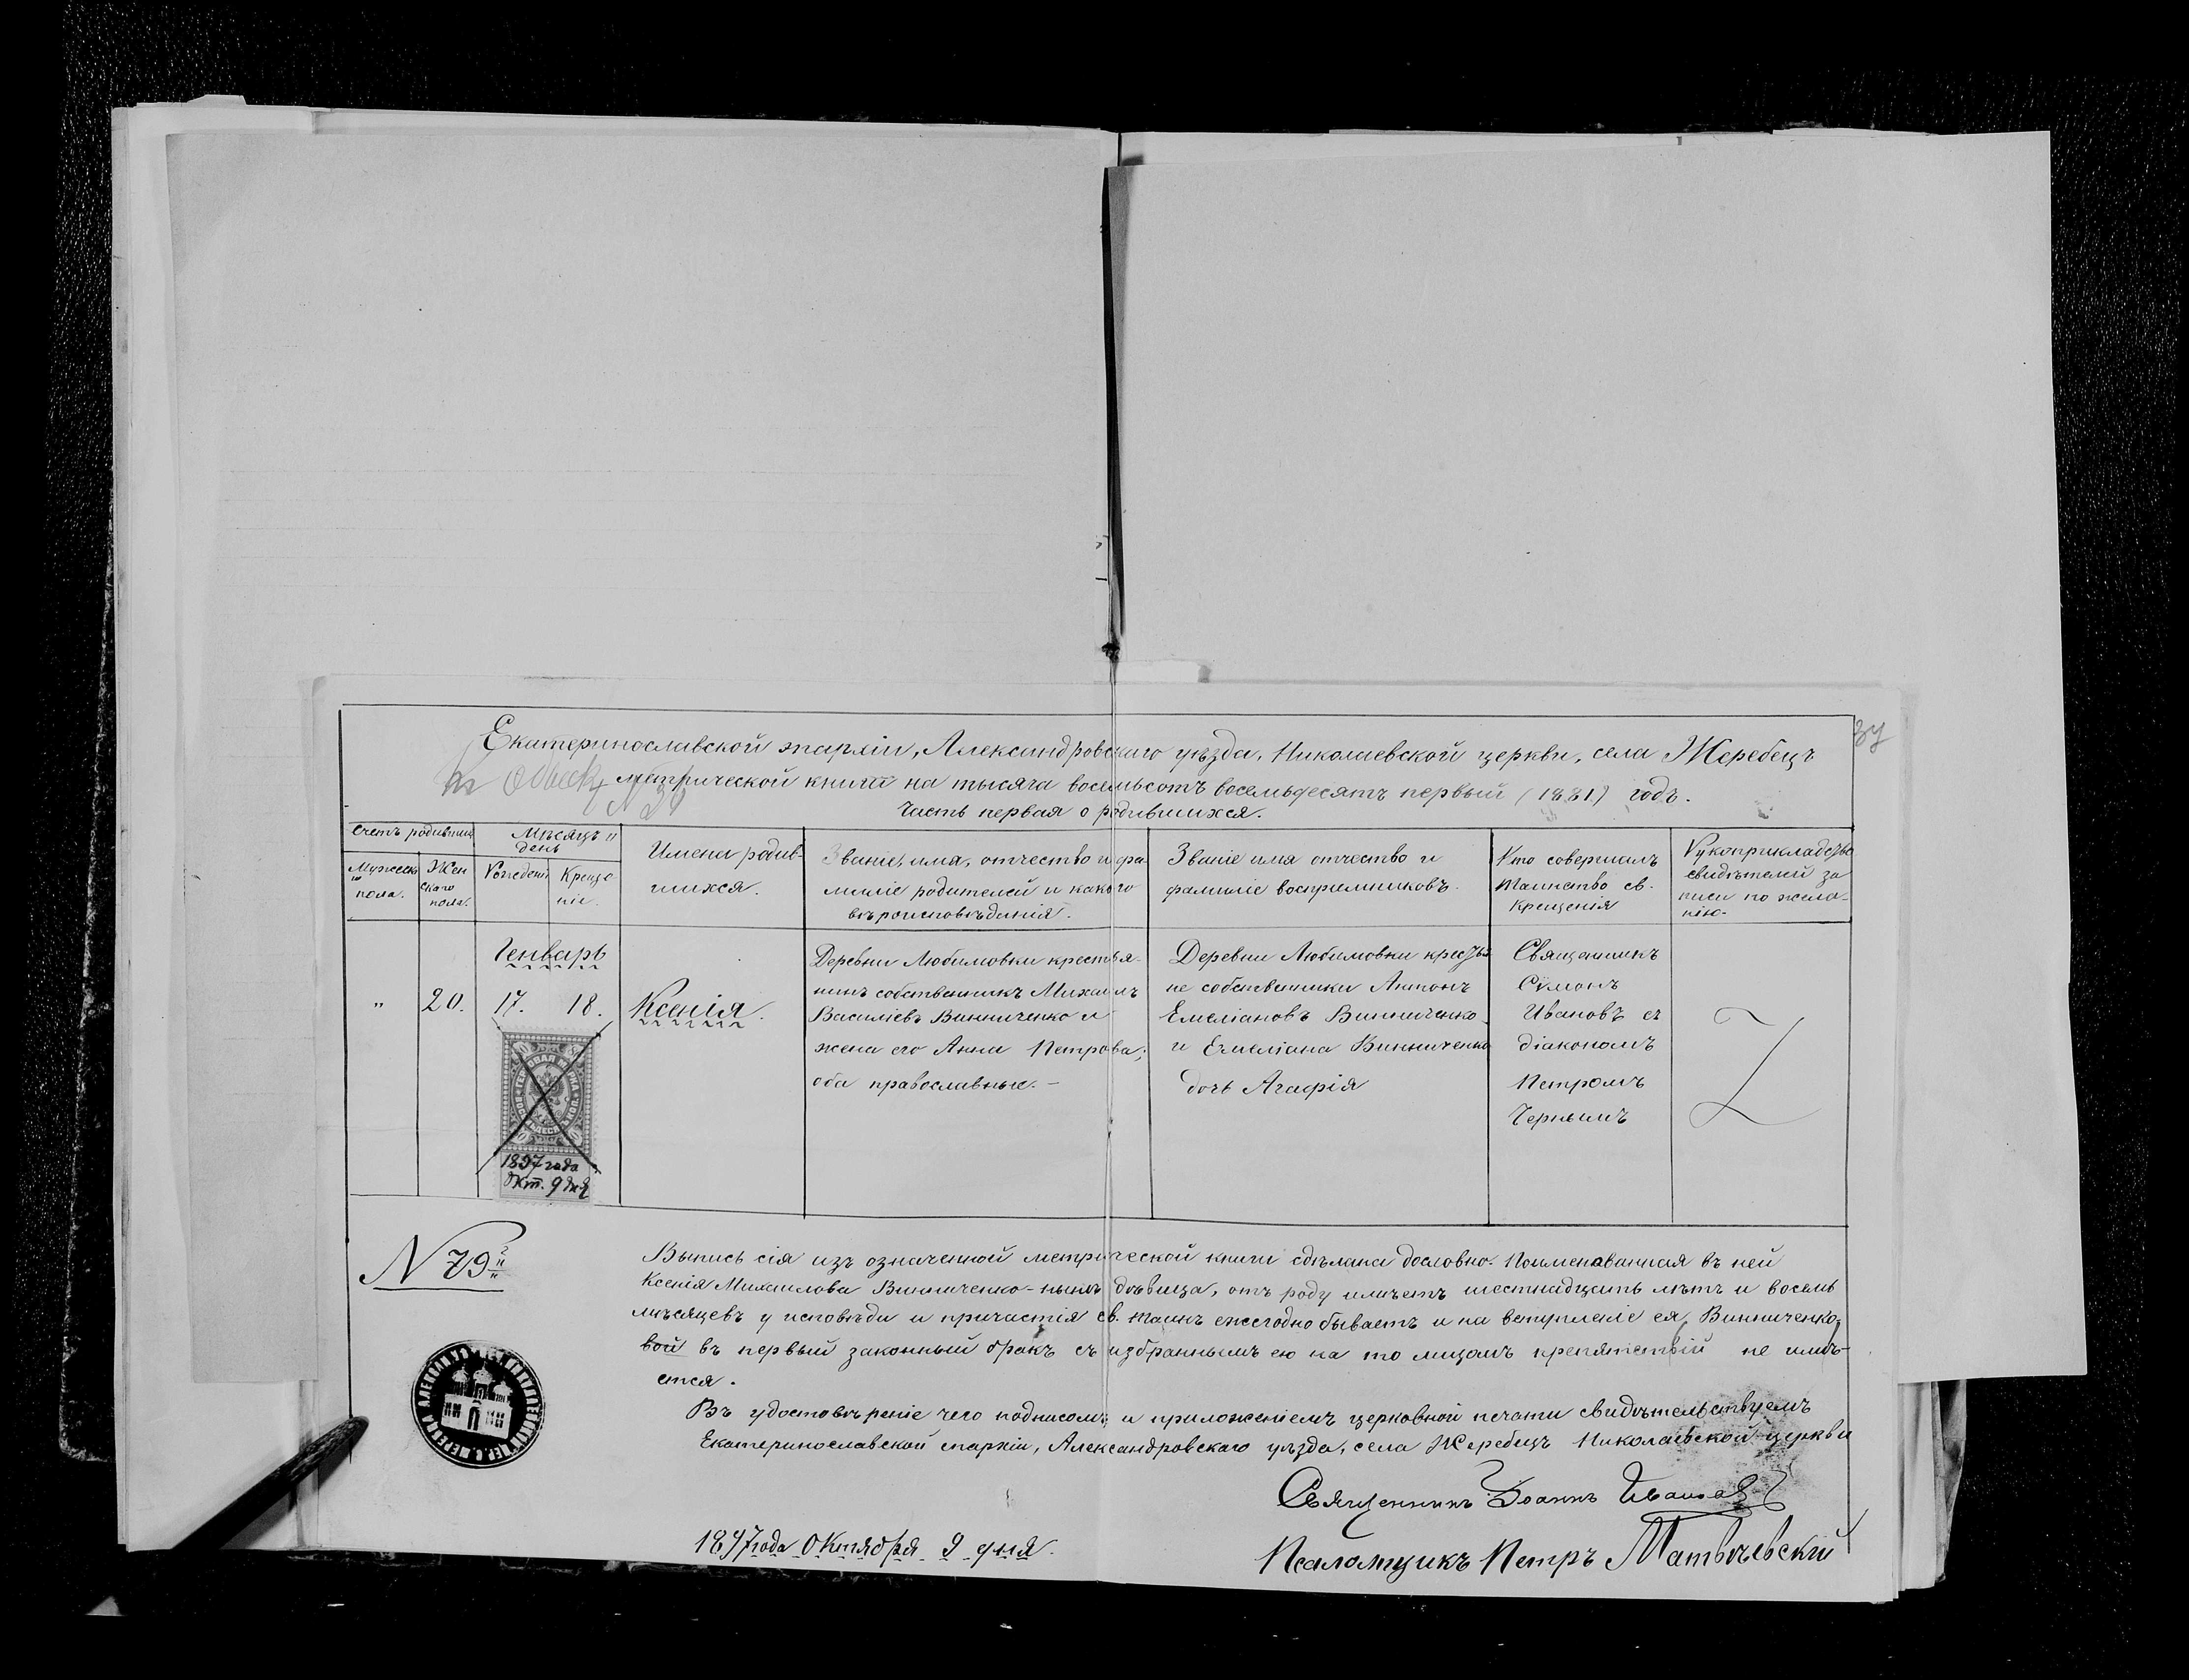 Екатеринославской эпархіи, Александровскаго уѣзда, Николаевской церкви, села Жеребецъ
метрической книги на тысяча восемьсотъ восемьдесятъ первый (1881) годъ.
Часть первая о родившихся.
Счетъ родившихся
Мужеска
го
пола.
Жен
скаго
пола.
Мѣсяцъ и
день
Рожденія
Креще-
ніе.
Имена родив-
шихся.
Званіе, имя, отчество и фа-
миліе родителей и какого
вѣроисповѣданія.
Званіе имя отчество и
фамиліе воспріемниковъ.
Кто совершалъ
таинство св.
крещенія
Рукоприкладство
свидѣтелей за
писи по жела-
нію.
"
20.
Генварь
17. 18.
Ксенія.
Деревни Любимовки крестья-
нинъ собственникъ Михаилъ
Василіевъ Винниченко и
жена его Анна Петрова;
оба православные. –
Деревни Любимовки крестья
не собственники Антонъ
Емеліановъ Винниченко
и Емеліана Винниченко
дочь Агафія
Священникъ
Сѵмонъ
Ивановъ съ
діакономъ
Петромъ
Чернымъ
1897 года
Окт. 9 дня
N 79
Выпись сія изъ означенной метрической книги сдѣлана дословно. Поименованная въ ней
Ксенія Михаилова Винниченко-нынѣ дѣвица, отъ роду имѣетъ шестнадцать лѣтъ и восемь
мѣсяцевъ у исповѣди и причастія св. таинъ ежегодно бываетъ и на вступленіе ея, Винниченко-
вой въ первый законный бракъ съ избраннымъ ею на то лицомъ препятствій не имѣ-
ется.
Въ удостовѣреніе чего подписомъ и приложеніемъ церковной печати свидѣтельствуемъ
Екатеринославской епархіи, Александровскаго уѣзда, села Жеребецъ Николаевской церкви
Священникъ Іоаннъ Ивановъ
1897 года Октября 9 дня.
Псаломщикъ Петръ Матвѣевскій